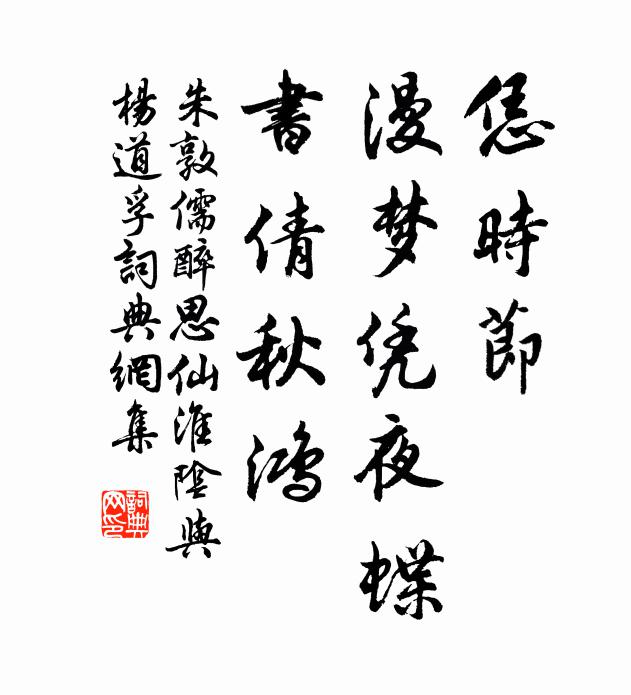 恁時節
漫梦凭夜蝶
書倩秋鴻
朱敦儒醉思仙淮陰與
楊道孚詞典網集
詞典
网印